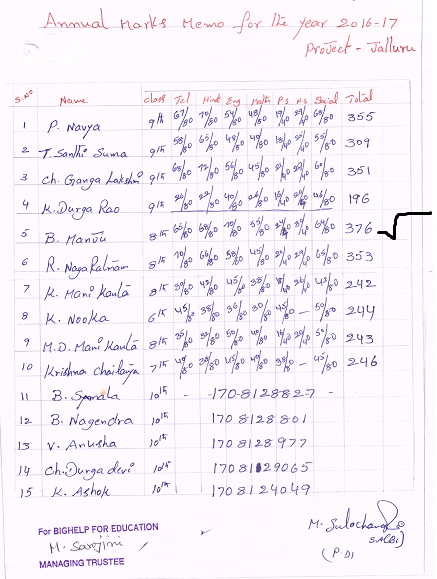 Annual Marks Memo for the year 2016-17
Project - Jalluru
S.No Name class Tel Hindi Eng Maths P.S N.S Social Total
1 P. Navya 9th 67/80 70/80 54/80 48/80 355
2 T. Santhi Suma 9th 58/80 65/80 48/80 309
3 Ch. Ganga Lakshmi 9th 68/80 72/80 56/80 45/80 351
4 K. Durga Rao 9th 22/80 40/80 196
5 B. Manju 8th 65/80 68/80 70/80 55/80 64/80 376
6 R. Naga Ratnam 8th 70/80 66/80 58/80 45/80 65/80 353
7 K. Mani Kanta 8th 45/80 38/80 43/80 242
8 K. Nooka 6th 45/80 38/80 36/80 30/80 45/80 - 50/80 244
9 M.D. Mani Kanta 8th 35/80 50/80 40/80 50/80 243
10 Krishna Chaitanya 7th 49/80 38/80 45/80 49/80 - 45/80 246
11 B. 10th - -1708128827 -
12 B. Nagendra 10th 1708128801
13 V. Anusha 10th 1708128977
14 Ch. Durga devi 10th 1708129065
15 K. Ashok 10th 1708124049
For BIGHELP FOR EDUCATION
M. Sarojini
MANAGING TRUSTEE
M. Sulochana
(P.D)